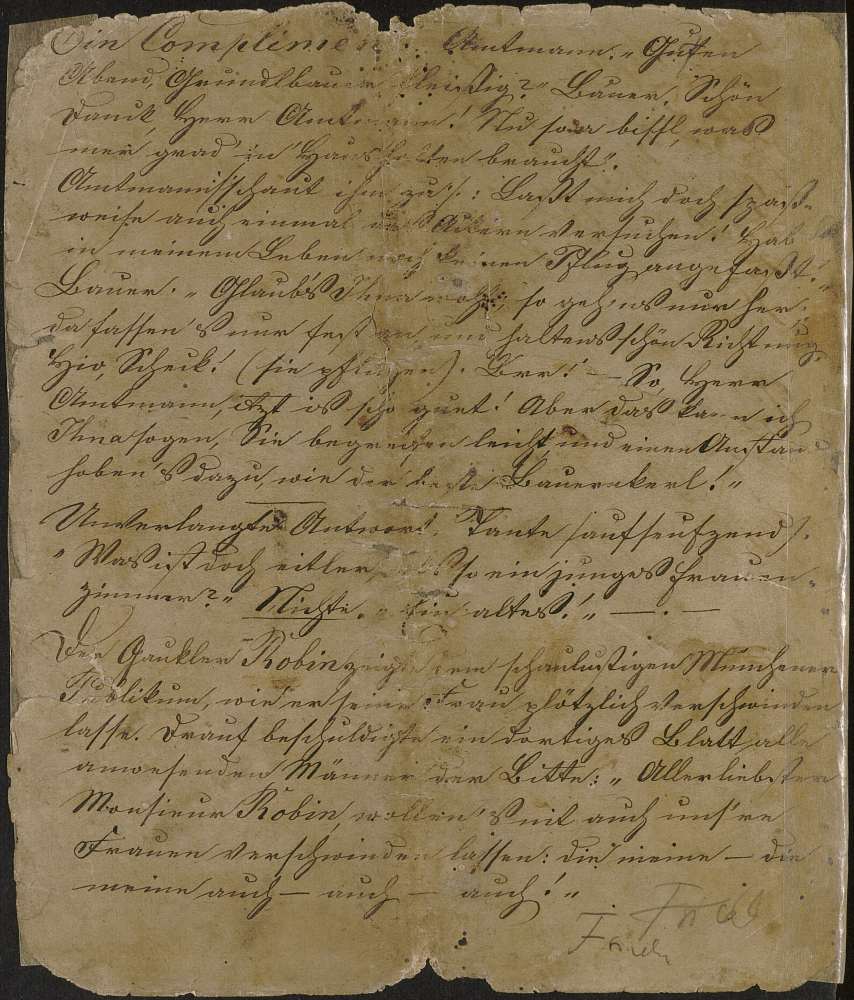 Ein Compliment. Amtmann. „Guten
Abend, Grundlbauer, fleißig?" Bauer. Schön
Dank, Herr Amtmann! Nu so a bissl, was
mer grad in Haushalten braucht".
Amtmann schaut ihm zu: Laßt mich doch spaß-
weise auch einmal das Ackern versuchen! Hab
in meinem Leben noch keinen Pflug angefaßt."
Bauer. „Glaub's Ihna wohl, so gehns nur her.
da fassen S nur fest an, und haltens schön Richtung.
Hio, Scheck! (sie pflügen). Brr! — So, Herr
Amtmann, itzt is scho guet! Aber das kann ich
Ihna sogen, Sie begreifen leicht, und einen Anstand
hoben S dazu, wie der beste Bauernkerl!"
Unverlangte Antwort. Tante (aufseufzend).
„Was ist doch eitler, als so ein junges Frauen-
zimmer?" Nichte. „Ein altes!" — . —
Der Gaukler Robin zeigte dem schaulustigen Münchener
Publikum, wie er seine Frau plötzlich verschwinden
lasse. Drauf beschuldigte ein dortiges Blatt alle
anwesenden Männer der Bitte: „Allerliebster
Monsieur Robin, wollen S nit auch uns're
Frauen verschwinden lassen: die meine — die
meine auch — auch — auch!"